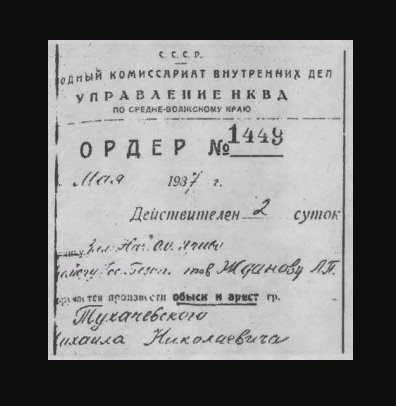 С. С. С. Р.
ОДНЫЙ КОМИССАРИАТ ВНУТРЕННИХ ДЕЛ
УПРАВЛЕНИЕ НКВД
ПО СРЕДНЕ-ВОЛЖСКОМУ КРАЮ
ОРДЕР № 1449
Мая 1937 г.
Действителен 2 суток
Зам. Нач.
Гос. Безоп. тов Жданову А.П.
оручается произвести обыск и арест гр.
Тухачевского
ихаила Николаевича